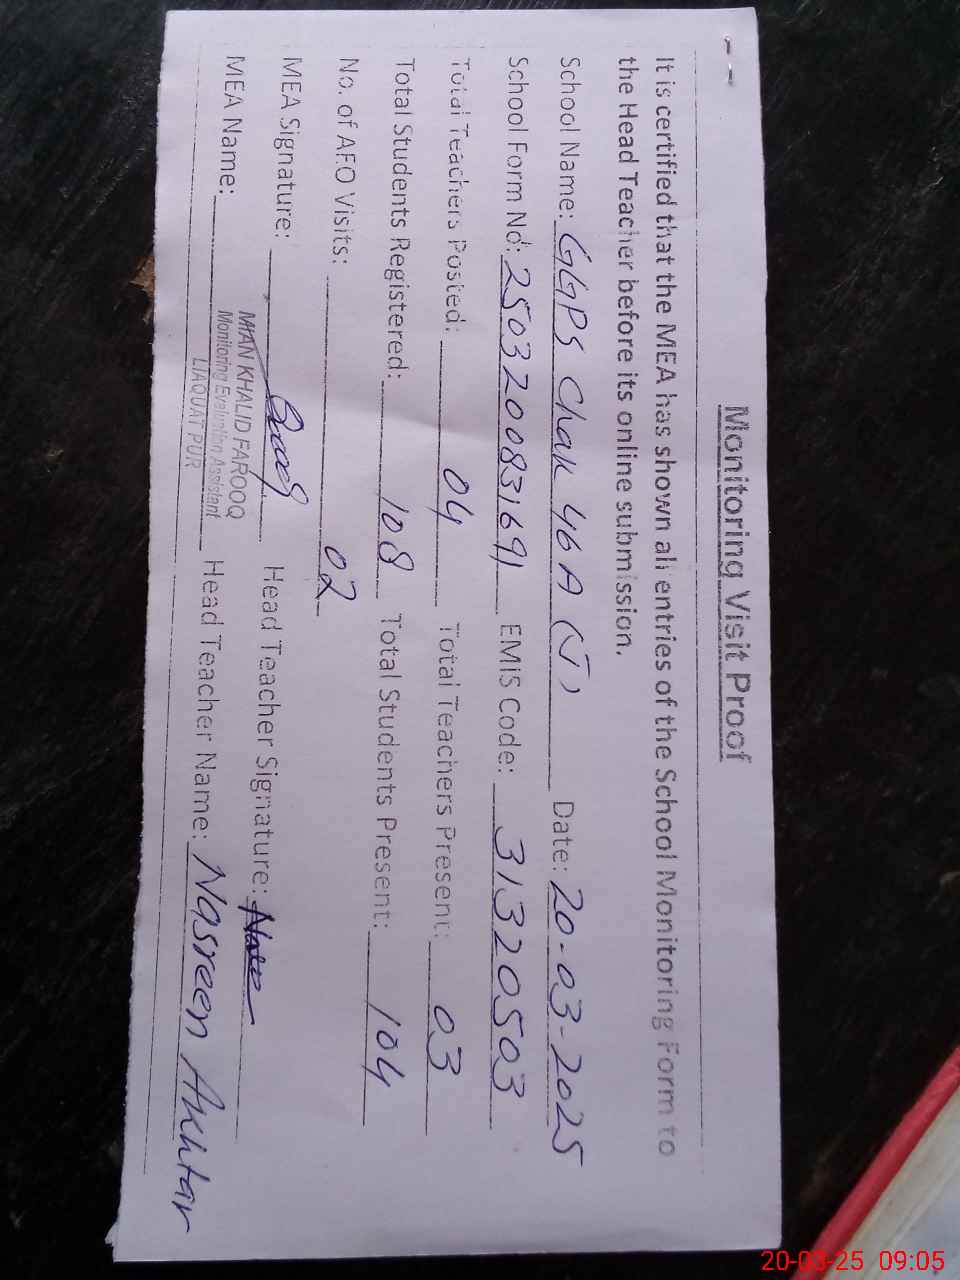 Monitoring Visit Proof
It is certified that the MEA has shown all entries of the School Monitoring Form to
the Head Teacher before its online submission.
School Name: GGPS Chak 46 A (J) Date: 20-03-2025
School Form No: 25032008316 91 EMIS Code: 31320503
Total Teachers Posted: 04 Total Teachers Present: 03
Total Students Registered: 108 Total Students Present: 104
No. of AEO Visits: 02
MEA Signature: Head Teacher Signature:
MIAN KHALID FAROOQ
Monitoring Evaluation Assistant
LIAQUAT PUR
MEA Name: Head Teacher Name: Nasreen Akhtar
20-03-25 09:05